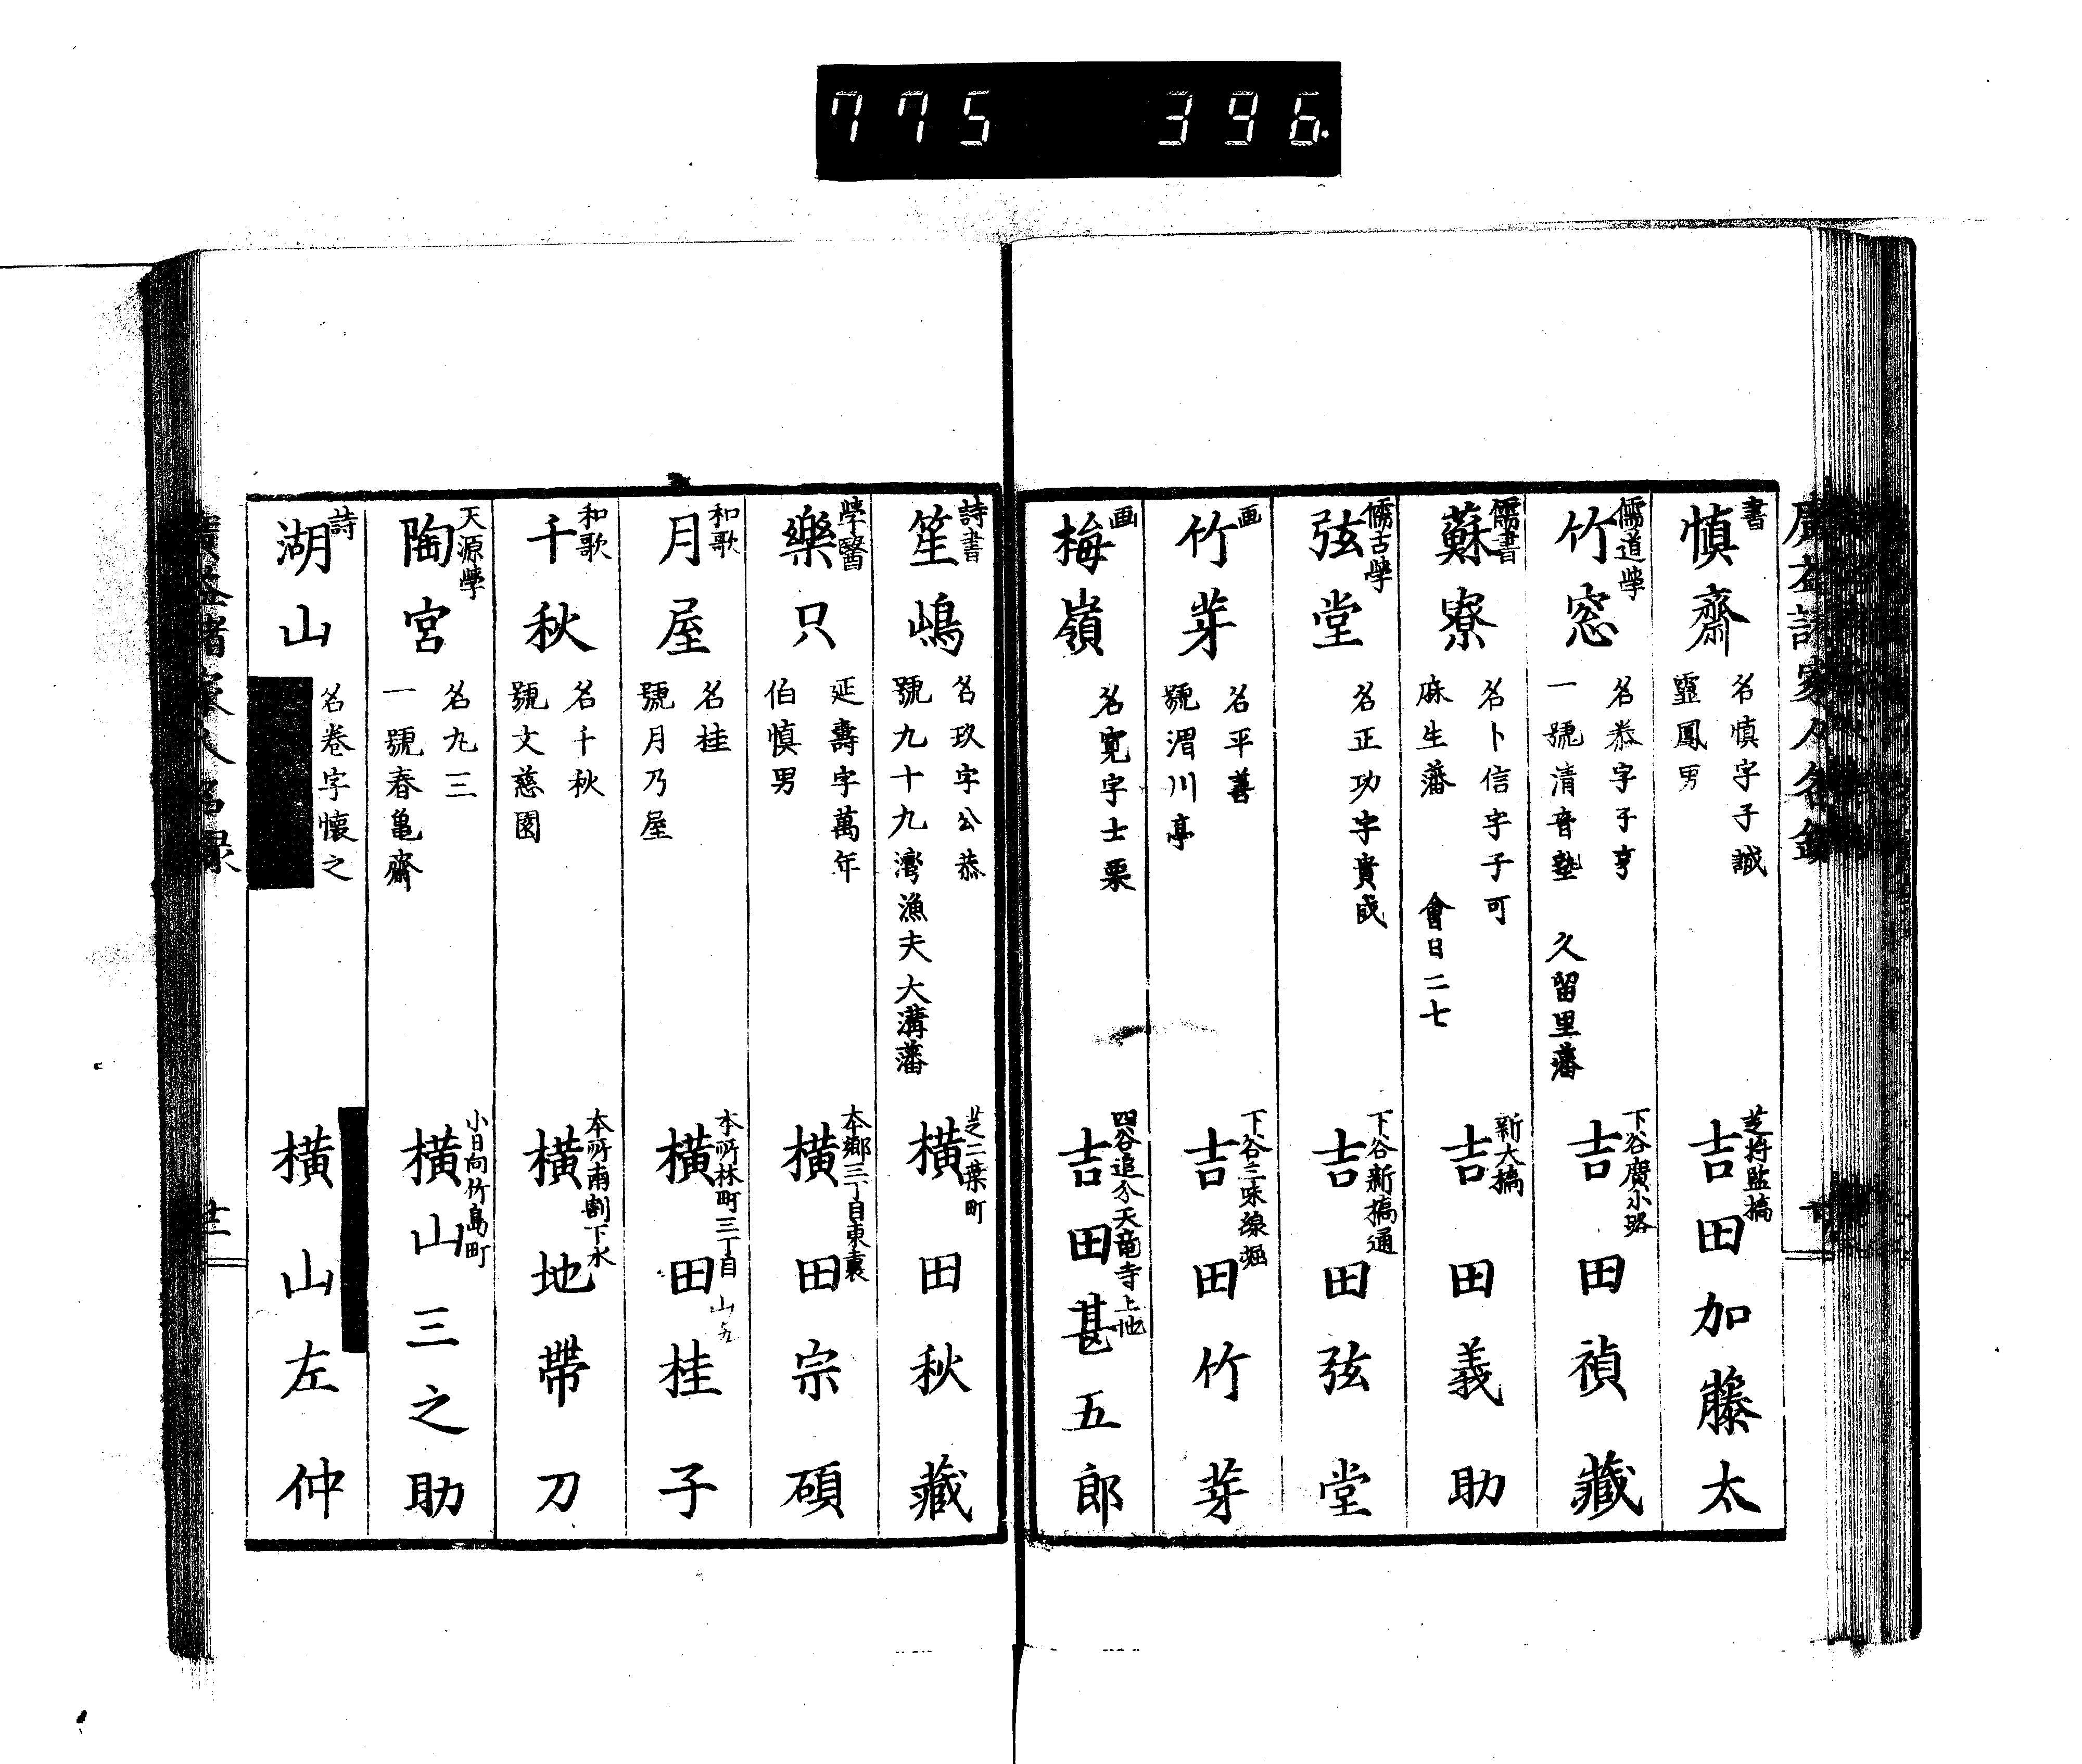 775 396
書
慎齋
名慎字子誠
靈鳳男
芝将監橋
吉田加藤太
儒道學
竹窓
名恭字子亨
一號清音塾 久留里藩
下谷廣小路
吉田禎藏
儒書
蘇寮
名卜信字子可
麻生藩 會日二七
新大橋
吉田義助
儒古學
弦堂
名正功字貴成
下谷新橋通
吉田弦堂
画
竹芽
名平善
號湄川亭
下谷三味線堀
吉田竹芽
画
梅嶺
名寛字士栗
四谷追分天竜寺上地
吉田甚五郎
詩書
笙嶋
名玖字公恭
號九十九灣漁夫大溝藩
芝二葉町
横田秋藏
學醫
樂只
延壽字萬年
伯慎男
本郷三丁目東裏
横田宗碩
和歌
月屋
名桂
號月乃屋
本所林町三丁目
横田桂子
和歌
千秋
名千秋
號文慈園
本所南割下水
横地帶刀
天源學
陶宮
名九三
一號春亀齋
小日向竹島町
横山三之助
詩
湖山
名卷字懷之
横山左仲
廣益諸家人名録